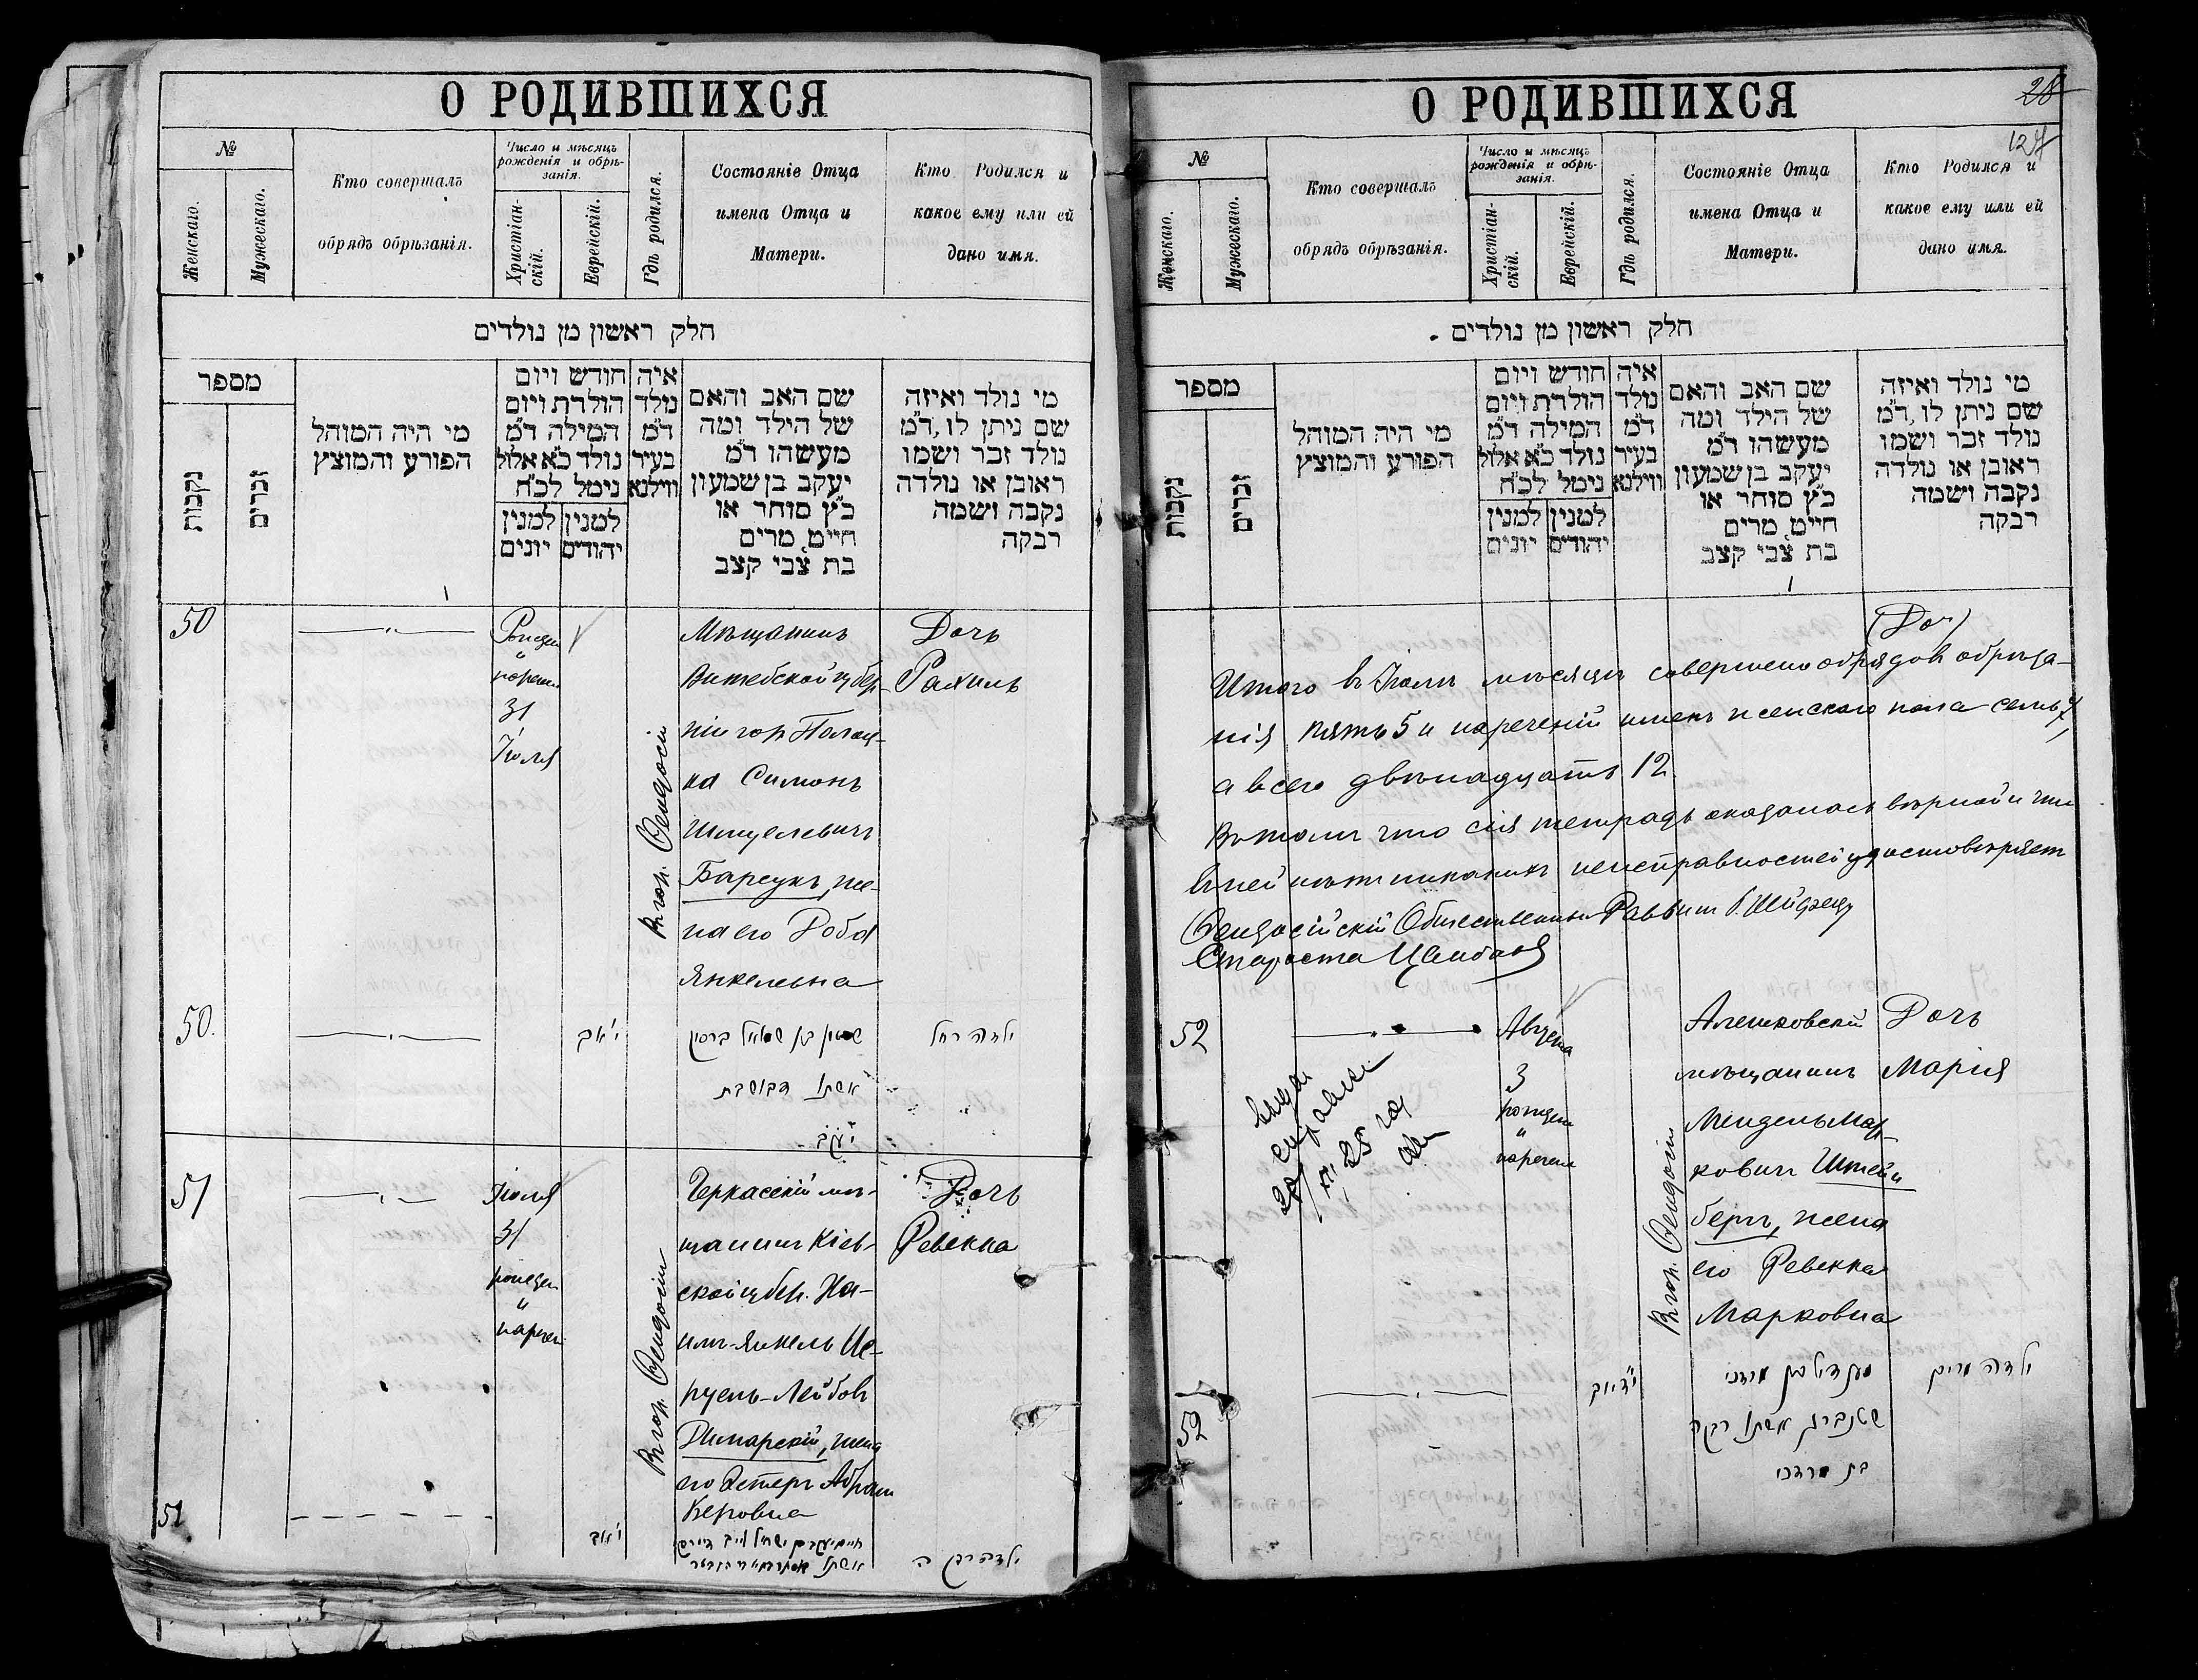 О РОДИВШИХСЯ
№
Женскаго.
Мужескаго.
Кто совершалъ
обрядъ обрѣзанія.
Число и мѣсяцъ
рожденія и обрѣ-
занія.
Христіан-
скій.
Еврейскій.
Гдѣ родился.
Состояніе Отца
имена Отца и
Матери.
Кто Родился и
какое ему или ей
дано имя.
חלק ראשון מן נולדים
מספר
נקבות
זכרים
מי היה המוהל
הפורע והמוצץ
חודש ויום
הולדת ויום
המילה ד"מ
נולד כ"א אלול
נימל לכ"ח
למנין יונים
למנין יהודים
איה
נולד
ד"מ
בעיר
ווילנא
שם האב והאם
של הילד ומה
מעשהו ד"מ
יעקב בן שמעון
כ"ץ סוחר או
חייט, מרים
בת צבי קצב
מי נולד ואיזה
שם ניתן לו, ד"מ
נולד זכר ושמו
ראובן או נולדה
נקבה ושמה
רבקה
50
31
Іюля
В гор. Ѳеодосіи
Мѣщанинъ
Витебской губер-
ніи гор. Полоц-
ка Симонъ
Шмуелевичъ
Барсукъ, же-
на его Доба
Янкелевна
Дочь
Рахиль
50.
י' אב
אשתו
יעקב
ילדה רחל
51
Іюля
31
В гор. Ѳеодосіи
Черкасскій мѣ-
щанинъ Кіев-
ской губер. Ха-
имъ-Янкель Из-
руель-Лейбовъ
Димарскій, жена
его Эстеръ Абрам
Беровна
Дочь
Ревекка
51
י' אב
ילדה רבקה
О РОДИВШИХСЯ
28
127
№
Женскаго.
Мужескаго.
Кто совершалъ
обрядъ обрѣзанія.
Число и мѣсяцъ
рожденія и обрѣ-
занія.
Христіан-
скій.
Еврейскій.
Гдѣ родился.
Состояніе Отца
имена Отца и
Матери.
Кто Родился и
какое ему или ей
дано имя.
חלק ראשון מן נולדים
מספר
נקבות
זכרים
מי היה המוהל
הפורע והמוצץ
חודש ויום
הולדת ויום
המילה ד"מ
נולד כ"א אלול
נימל לכ"ח
למנין יונים
למנין יהודים
איה
נולד
ד"מ
בעיר
ווילנא
שם האב והאם
של הילד ומה
מעשהו ד"מ
יעקב בן שמעון
כ"ץ סוחר או
חייט, מרים
בת צבי קצב
מי נולד ואיזה
שם ניתן לו, ד"מ
נולד זכר ושמו
ראובן או נולדה
נקבה ושמה
רבקה
(Доч)
Итого въ Іюлѣ мѣсяцѣ совершено обрядовъ обрѣза-
нія пять 5 и нареченій именъ женскаго пола семь 7,
а всего двѣнадцать 12.
Въ томъ что сія тетрадь оказалась вѣрной и что
въ ней нѣтъ никакихъ неисправностей удостовѣряетъ
Ѳеодосійскій Общественный Раввинъ
Староста
52
Августа
3
В гор. Ѳеодосіи
Алешковскій
мѣщанинъ
Мендель Мар-
ковичъ Штейн
бергъ, жена
его Ревекка
Марковна
Дочь
Марія
52
מענדיל בן מרדכי
שטנברג אשתו רבקה
בת מרדכי
ילדה מרים